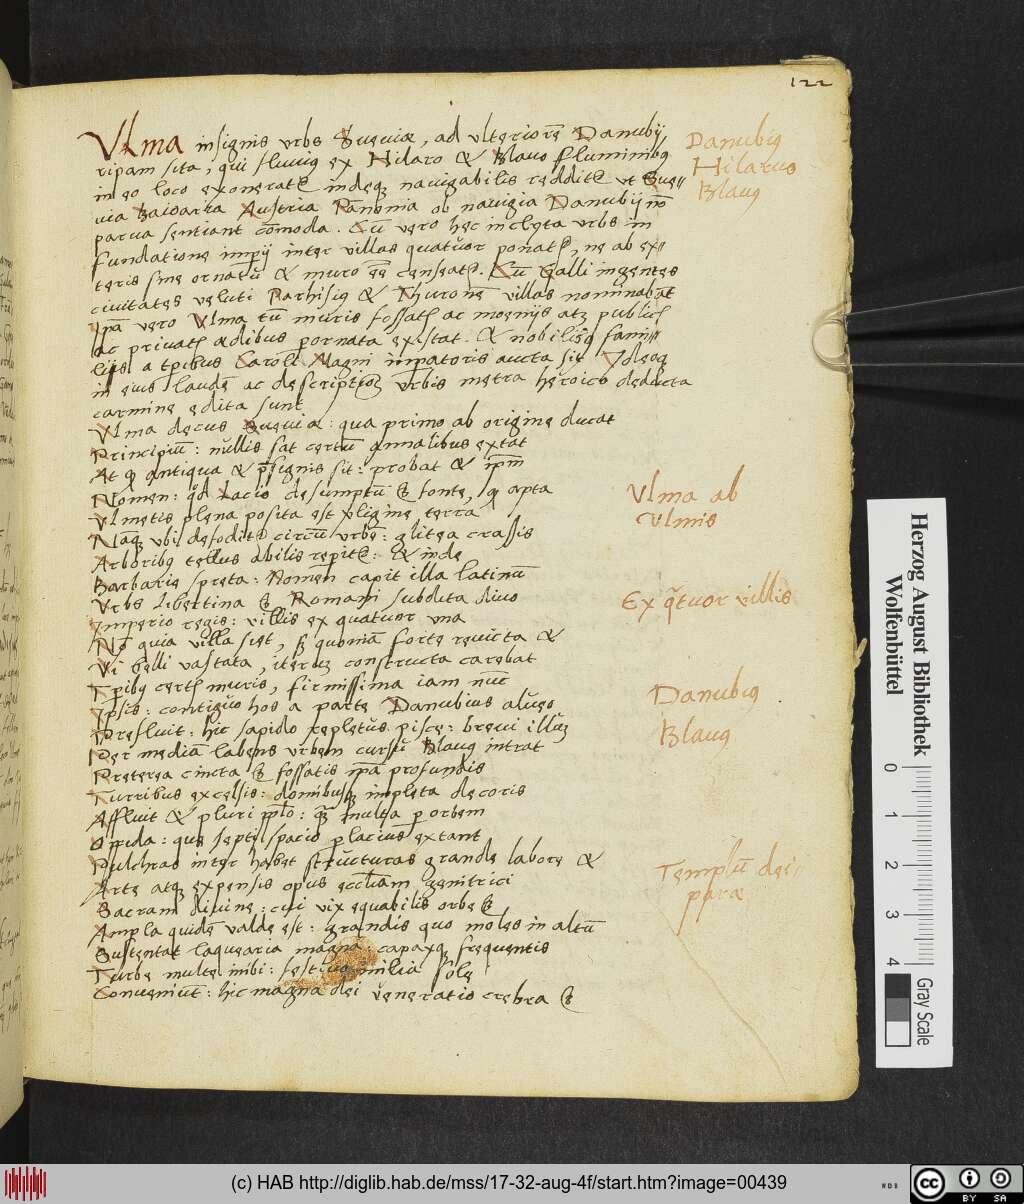 122
Vlma insignis vrbs Sueuiæ, ad vlteriorē Danubij
ripam sita, qui fluuiꝯ ex Hilaro & Blauo fluminibꝯ
in eo loco exoneratꝭ indeqꝫ nauigabilis redditꝭ vt Sue⸗
uia Baioaria Austria Pānonia ob nauigia Danubij nō
parua sentiant cōmoda. Cū vero hec inclyta vrbs in
fundatione impij inter villas quatuor ponatꝭ, ne ab ex⸗
teris sine ornatu & muro eē censeatꝭ. Cū Galli ingentes
ciuitates veluti Parhisiꝯ & Thuronē villas nominabāt
ipā vero Vlma tū muris fossatꝭ ac moenijs atqꝫ publicꝭ
ac priuatꝭ ædibus pornata existat. & nobilisꝯ fami⸗
lijs a tpibus Caroli Magni impatoris aucta sit Ideoqꝫ
in eius laudē ac descriptionē vrbis metra heroico deducta
carmine edita sunt
Vlma decus Sueuiæ: qua primo ab origine ducat
Principiū: nullis sat certū annalibus extat
At ꝙ antiqua & psignis sit: probat & ipm
Nomen: qđ Lacio desumptū ē fonte, ꝙ apta
Vlmetis plena posita est vligine terra
Nāqꝫ vbi defoditꝭ circū vrbē: glitea crassis
Arboribꝯ tellus abilis repitꝭ: & inde
Barbarie spreta: Nomen capit illa latinū
Vrbs libertina ē Romani subdita diuo
Imperio regis: villis ex quatuor vna
Nō quia villa siet, sꝫ quoniam forte reuicta &
Vi belli vastata, iterūqꝫ constructa carebat
Tpibꝯ certꝭ muris, firmissima iam nūc
Ipsis: contiguo hos a parte Danubius alueo
Prefluit: hic sapido repletus pisce: breui illūqꝫ
Per mediā labens vrbem cursu Blauꝯ intrat
Preterea cincta ē fossatis ipā profundis
Turribus excelsis: domibusqꝫ impleta decoris
Affluit & pluri pplo: qꝫ multa p orbem
Opida: que septi spacio p lacius extant
Pulchras inter habet structuras grande labore &
Arte atqꝫ expensis opus eccliam genitrici
Sacram diuine: cui vix equabilis orbe ē
Ampla quidē valde est: grandis quo moles in altū
Sustentat laquearia magna capaxqꝫ frequentis
Turbe multe inibi: festiuo milia sole
Conueniūt: hic magna dei veneratio crebra ē
Danubiꝯ
Hilarus
Blauꝯ
Vlma ab
Vlmis
Ex qtuor villis
Danubiꝯ
Blauꝯ
Templū dei⸗
paræ
Herzog August Bibliothek
Wolfenbüttel
0
1
2
3
4
Gray Scale
(c) HAB http://diglib.hab.de/mss/17-32-aug-4f/start.htm?image=00439
WDB
cc
BY SA